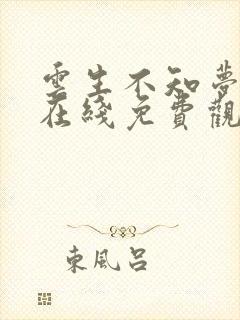 雲生不知夢
在綫免費觀
東風呂